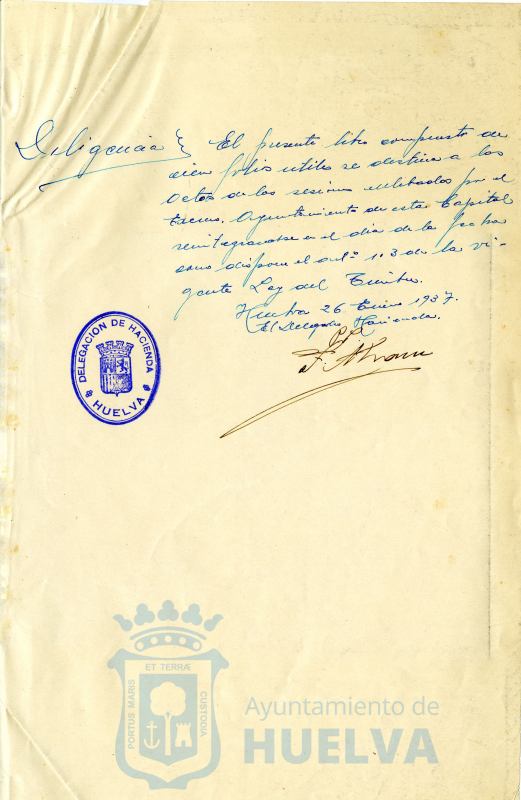 Diligencia } El presente libro compuesto de
cien folios utiles se destina a las
actas de las sesiones celebradas por el
Excmo. Ayuntamiento de esta Capital
reintegrandose en el día de la fecha
como dispone el artº 113 de la vi-
gente Ley del Timbre.
Huelva 26 Enero 1937.
El Delegado Hacienda.
DELEGACION DE HACIENDA
HUELVA
PORTUS MARIS
ET TERRÆ
CUSTODIA
Ayuntamiento de
HUELVA